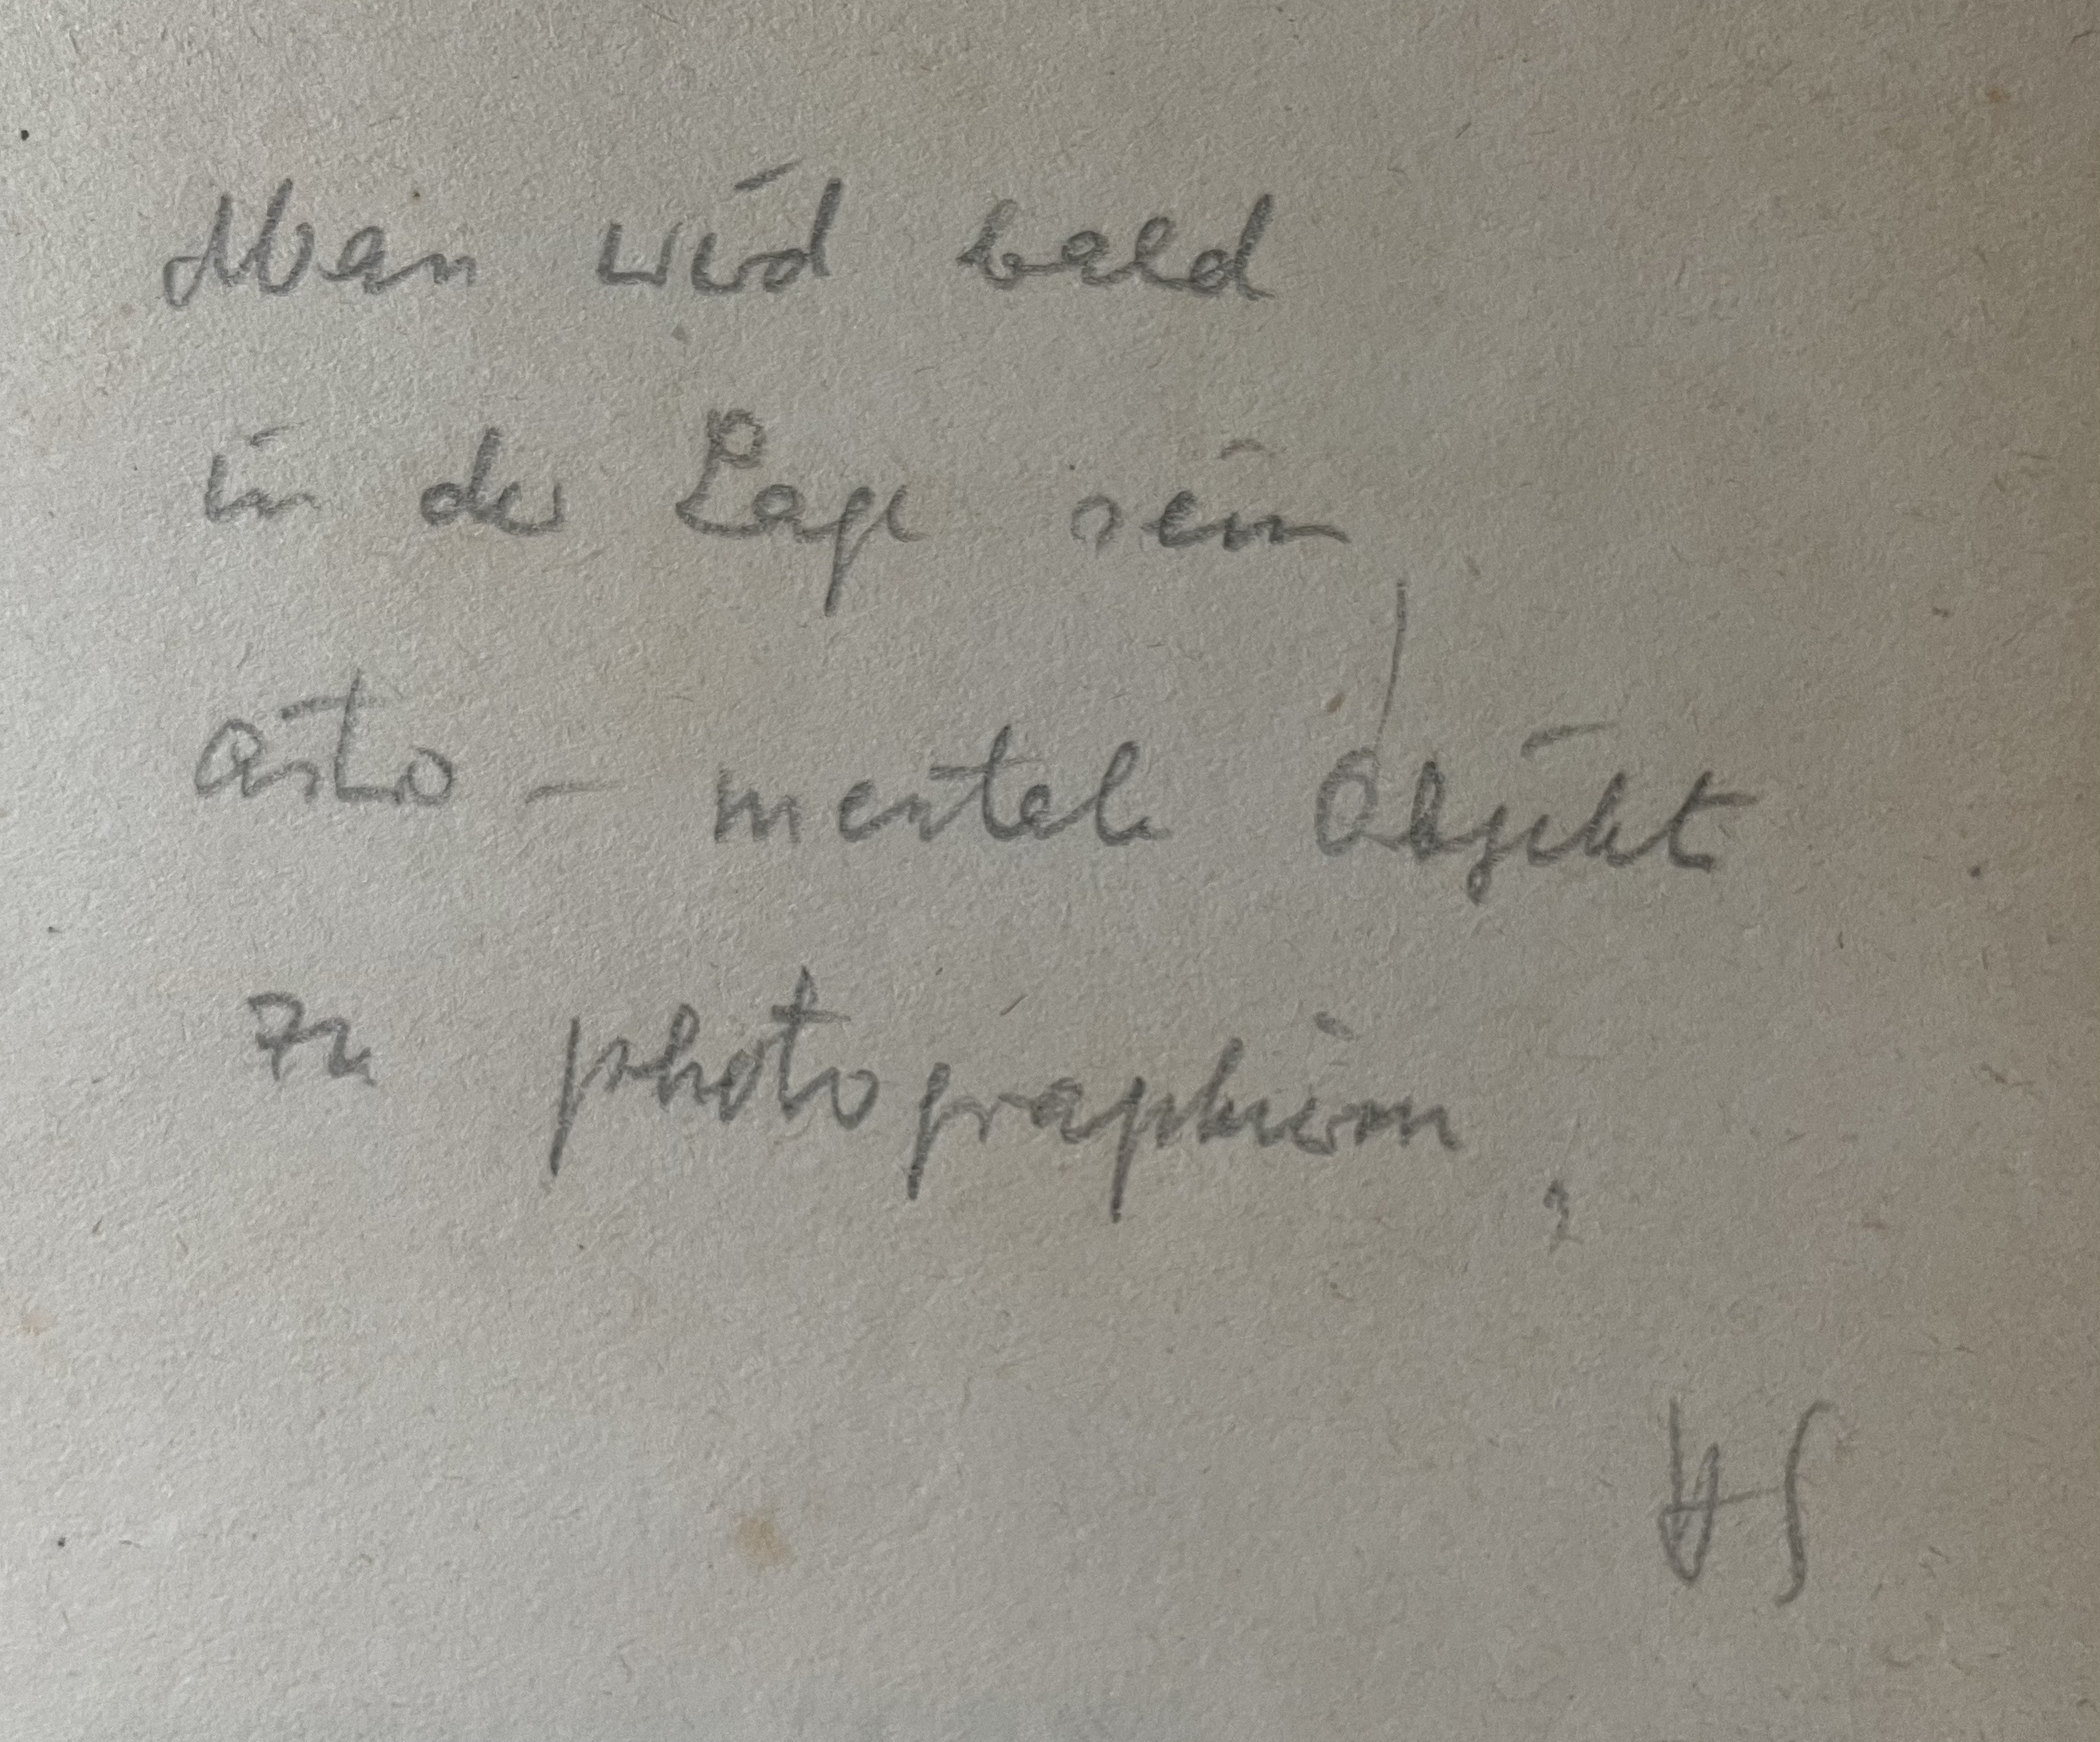 Man wird bald
in der Lage sein,
astro – mentale Objekte
zu photographieren
HS